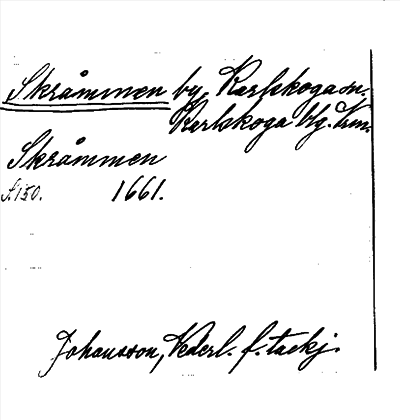 Skråmmen by, Karlskoga sn.
Karlskoga blg. Vrm.
Skråmmen
S. 150. 1661.
Johansson, Nederl. f. tackj.